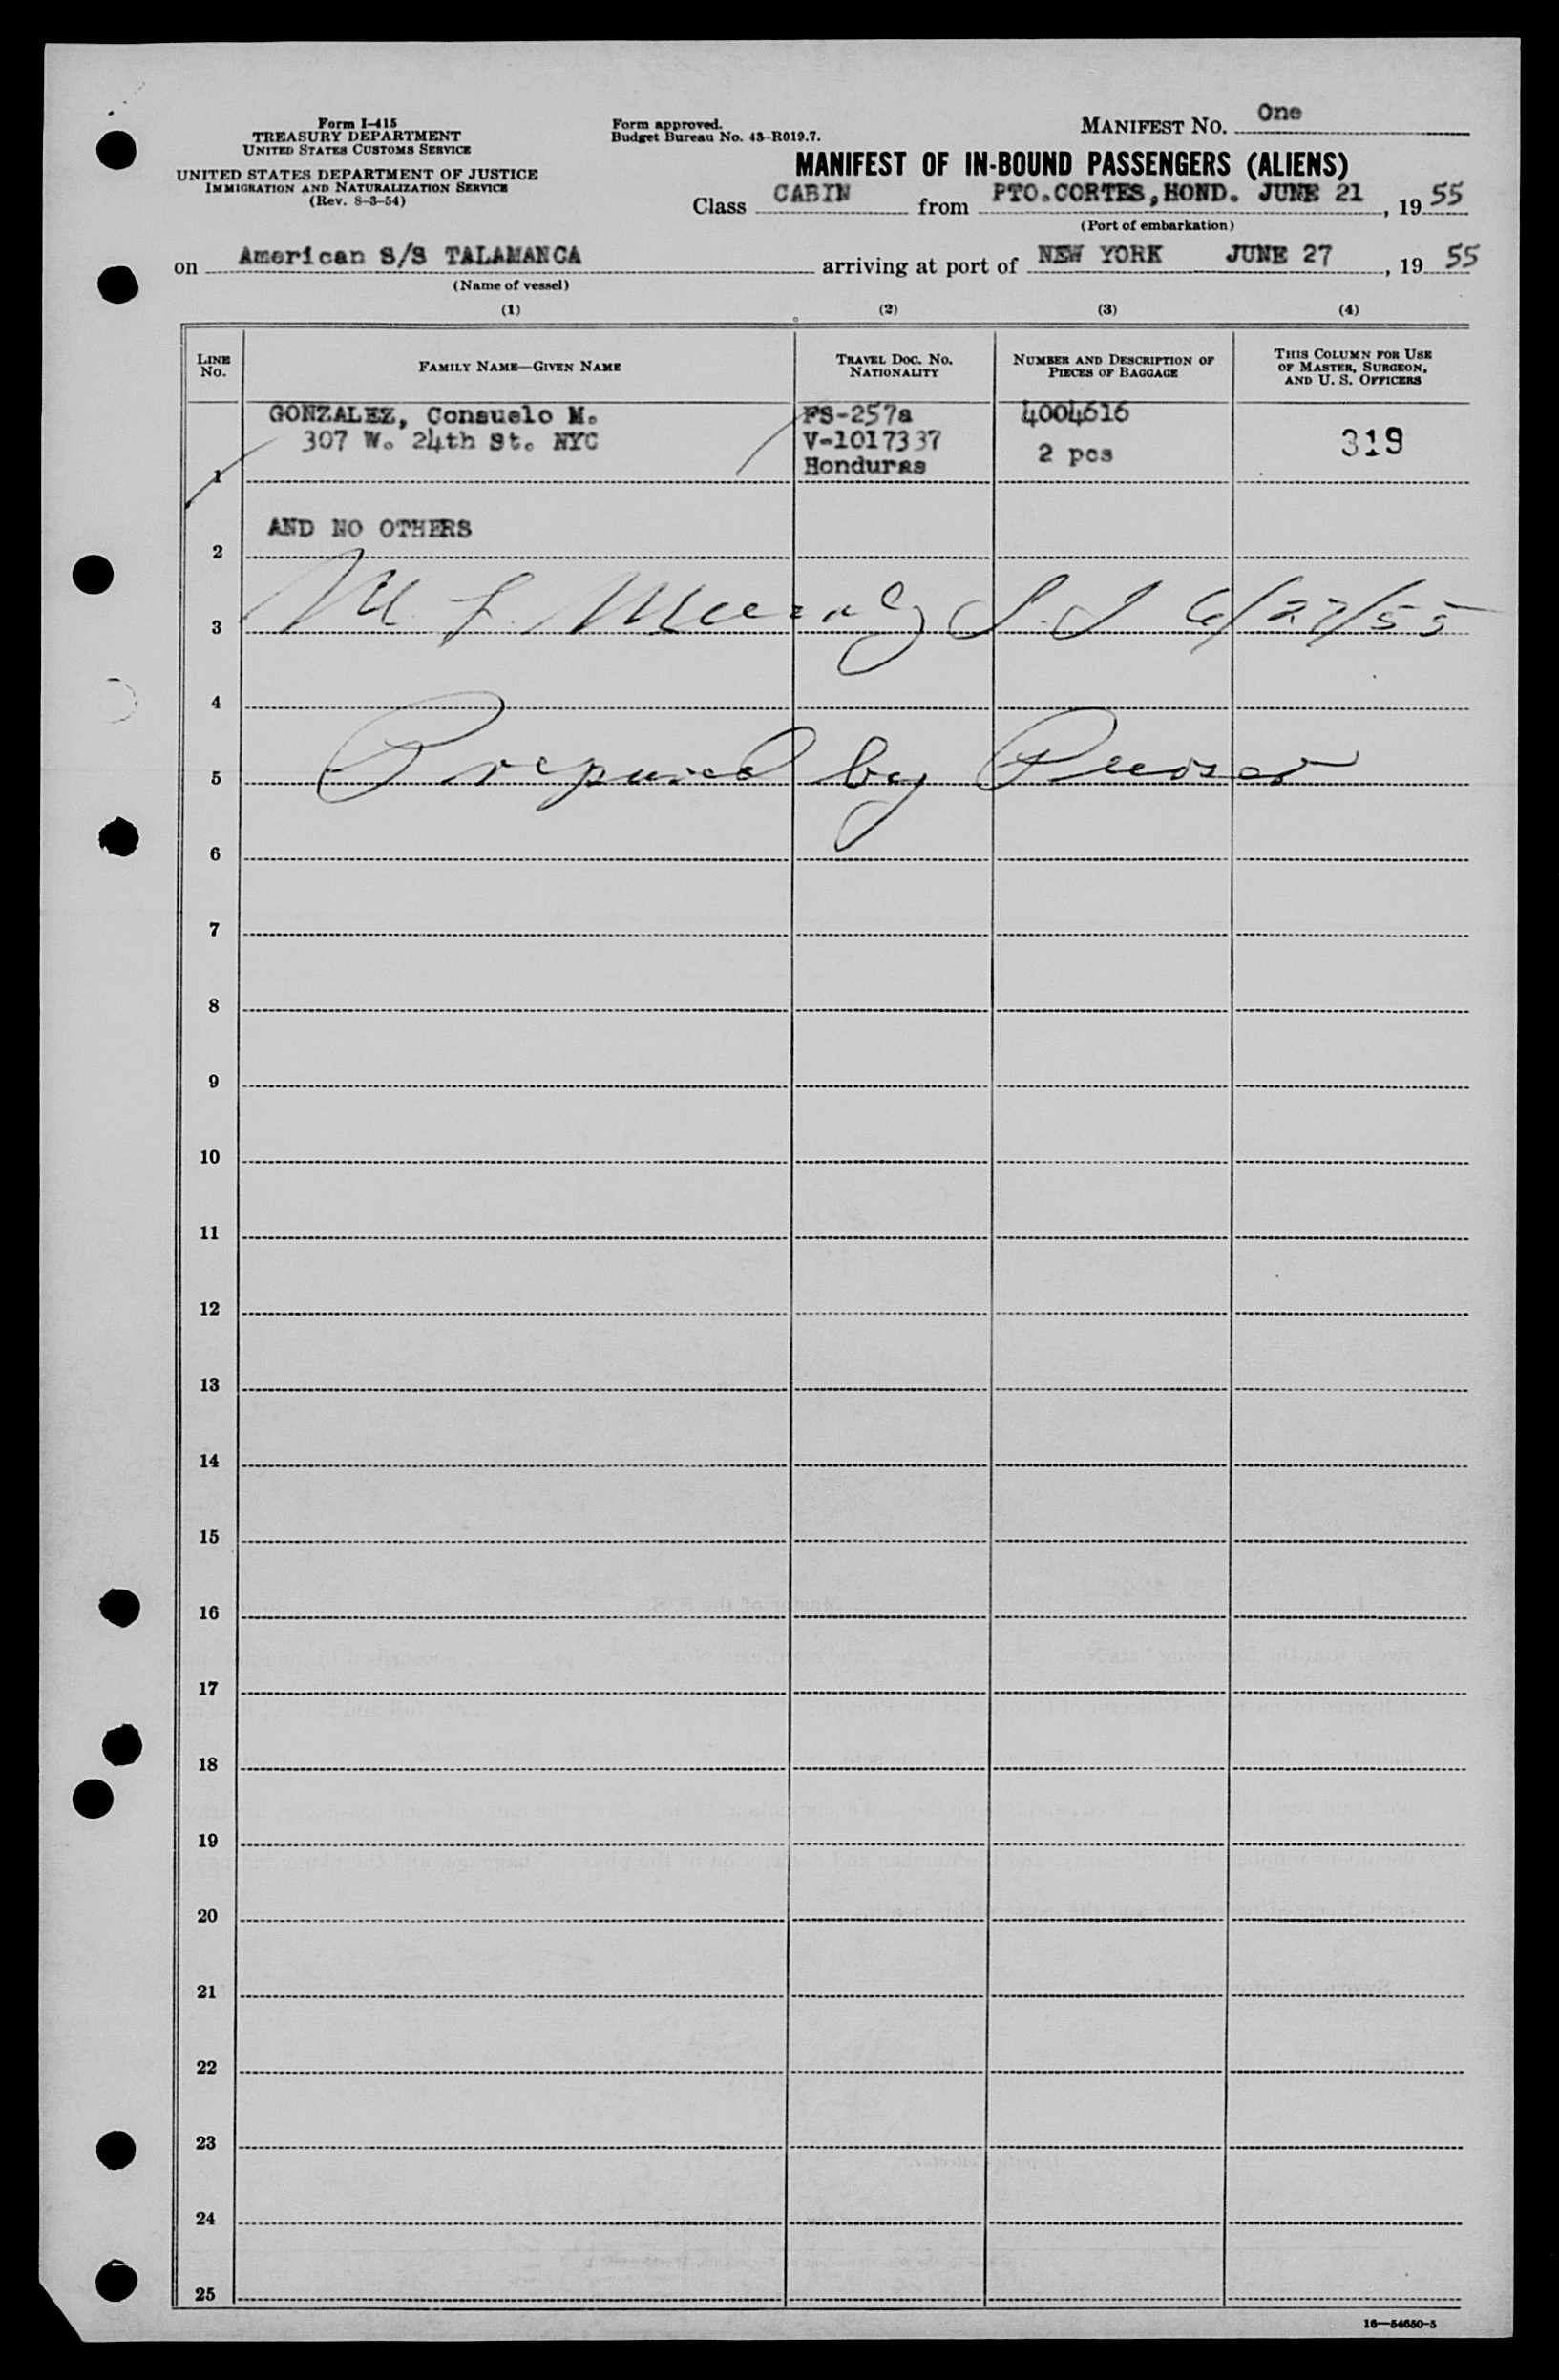 Form I-415
TREASURY DEPARTMENT
UNITED STATES CUSTOMS SERVICE
UNITED STATES DEPARTMENT OF JUSTICE
IMMIGRATION AND NATURALIZATION SERVICE
(Rev. 8-3-54)
Form approved.
Budget Bureau No. 43-R019.7.
MANIFEST NO. One
MANIFEST OF IN-BOUND PASSENGERS (ALIENS)
Class CABIN from PTO.CORTES, HOND. JUNE 21, 1955
(Port of embarkation)
on American S/S TALAMANCA arriving at port of NEW YORK JUNE 27, 1955
(Name of vessel)
(1) (2) (3) (4)
LINE NO.
FAMILY NAME—GIVEN NAME
TRAVEL DOC. NO. NATIONALITY
NUMBER AND DESCRIPTION OF PIECES OF BAGGAGE
THIS COLUMN FOR USE OF MASTER, SURGEON, AND U. S. OFFICERS
GONZALEZ, Consuelo M. FS-257a 4004616
307 W. 24th St. NYC V-1017337 2 pcs 319
1 Honduras
AND NO OTHERS
2
3 M. L. 6/27/55
4
5 Prepared by Purser
6
7
8
9
10
11
12
13
14
15
16
17
18
19
20
21
22
23
24
25
16—54650-5